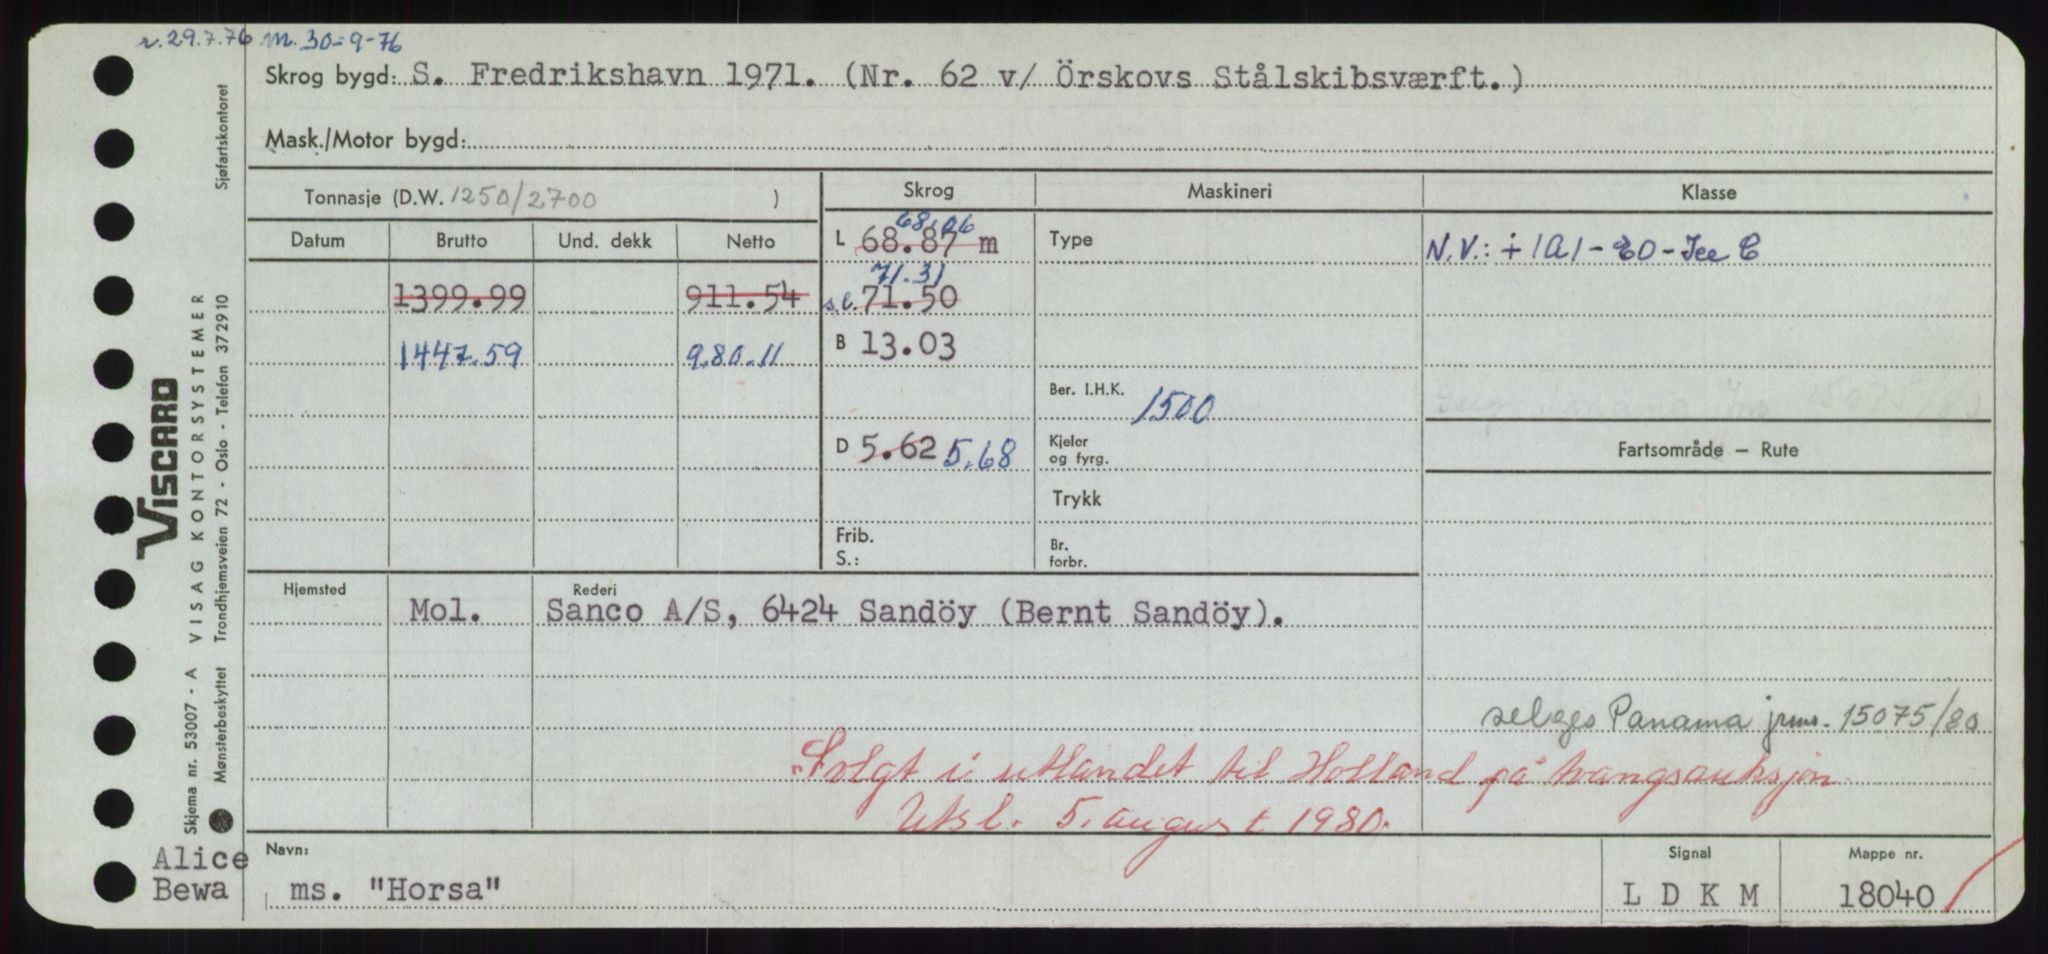 r. 29.7.76 m. 30-9-76
Skrog bygd: S. Fredrikshavn 1971. (Nr. 62 v/ Örskovs Stålskibsværft.)
Mask./Motor bygd:
Tonnasje (D.W. 1250/2700 )
Skrog Maskineri Klasse
Datum Brutto Und. dekk Netto
68.06
L 68.87 m Type N.V.: + 1A1 - EO - Ice C
71.31
1399.99 911.54 s.l. 71.50
1447.59 980.11 B 13.03
Ber. I.H.K. 1500
D 5.62 5.68 Kjeler og fyrg. Fartsområde – Rute
Trykk
Frib. S.: Br. forbr.
Hjemsted Rederi
Mol. Sanco A/S, 6424 Sandöy (Bernt Sandöy).
selges Panama jrns. 15075/80
Solgt i utlandet til Holland på tvangsauksjon.
Utsl. 5. august 1980.
Alice
Bewa
Navn: ms. "Horsa"
Signal L D K M
Mappe nr. 18040
VISCARD
VISAG KONTORSYSTEMER
Sjøfartskontoret
Trondhjemsveien 72 - Oslo - Telefon 372910
Skjema nr. 53007 - A
Mønsterbeskyttet